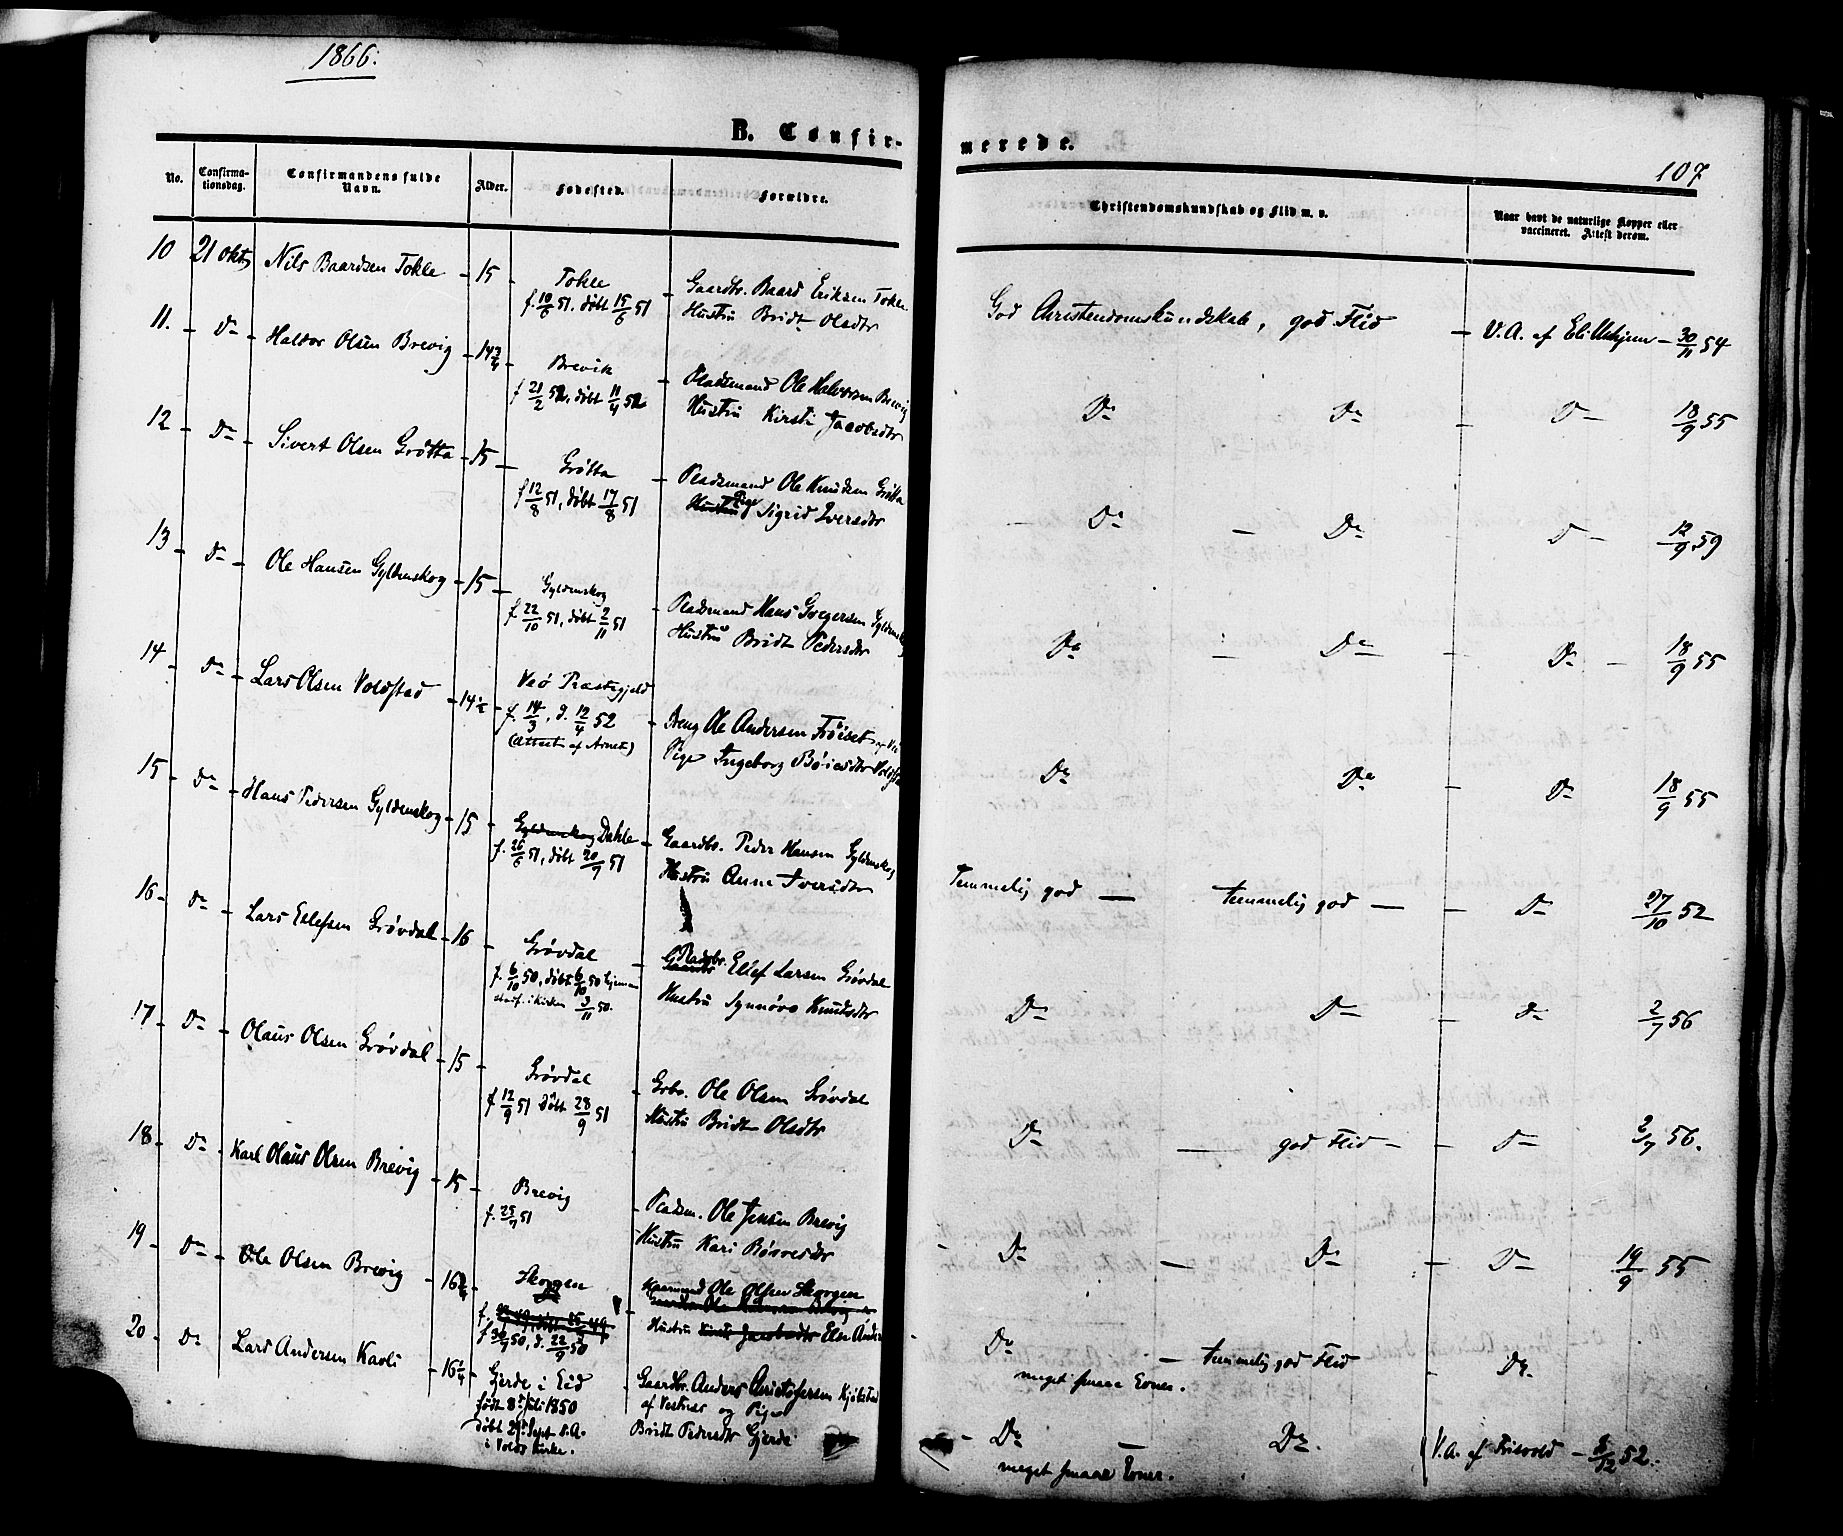 1866:
B. Confir-
merede.
107
No.
Confirma-
tionsdag.
Confirmandens fulde
Navn.
Alder.
Fødested.
Forældre.
Christendomskundskab og Flid m. v.
Naar havt de naturlige Kopper eller
vaccineret. Attest derom.
10 21 Okt. Nils Baardsen Tokle - 15 - Tokle
f. 10/6 51, døbt 15/6 51
Gaardbr. Baard Eriksen Tokle
Hustru Bridt Olsdtr
God Christendomskundskab, god Flid - V.A. af Eli - 30/11 54
11. - Do - Haldor Olsen Brevig - 14 3/4 - Brevik
f 21/2 52, døbt 11/4 52
Pladsmand Ole Halvorsen Brevig
Hustru Kirsti Jacobsdtr
Do Do - D - 18/9 55
12 - Do - Sivert Olsen Grötta - 15 - Grötta
f 12/8 51, døbt 17/8 51
Pladsmand Ole Knudsen Grötta
Hustru Pige Sigrid Iversdtr
- Do - Do D - 12/9 59
13 - Do - Ole Hansen Gyldenskog - 15 - Gyldenskog
f. 22/10 51, døbt 2/11 51
Pladsmand Hans Gregersen Gyldenskog
Hustru Bridt Pedersdtr
Do - Do - Do - 18/9 55
14 - Do - Lars Olsen Voldstad - 14 1/2 - Veö Præstegjeld
f. 14/3, d. 12/4 52
(Attest af Arnet)
Dreng Ole Andersen af Veö
Pige Ingeborg
Do Do - Do 18/9 55
15 - Do - Hans Pedersen Gyldenskog - 15 - Gyldenskog Dahle
f. 26/6 51, døbt 20/9 51
Gaardbr. Peder Hansen Gyldenskog
Hustru Anne Iversdtr
Temmelig god - temmelig god - - Do 27/10 52
16 - Do - Lars Ellefsen Grøvdal - 16 - Grøvdal
f. 6/10 50, døbt 6/10 50 hjemme
i Kirken 3/11 50.
Gaardbr Pladsbr. Ellef Larsen Grøvdal
Hustru Synnøve Knudsdtr
Do Do - Do 2/7 56
17 - Do - Olaus Olsen Grøvdal - 15 - Grøvdal
f 12/9 51 döbt 28/9 51
Grbr. Ole Olsen Grøvdal
Hustru Bridt Olsdtr
Do - god Flid - - Do 2/7 56.
18 - Do - Karl Olaus Olsen Brevig - 15 - Brevig
f. 25/7 51
Pladsm. Ole Jensen Brevig
Hustru Kari
- Do - Do - Do 19/9 55
19 - Do - Ole Olsen Brevig - 16 - Skorgen
50, d. 22/9 50
Ole Olsen Skorgen
Hustru Jacobsdtr Else Anders
Do - temmelig god Flid - Do.
meget smaae Evner.
20 - Do Lars Andersen Kavli - 16 1/4 - Gjerde i Eid
født 8de Juli 1850
døbt Sept s.A.
i Volds Kirke.
Gaardbr. Anders Christofersen
af Vestnæs og Pige
Bridt Pedersdtr Gjerde
- Do - Do. V.A. af Frisvold - 8/12 52.
meget smaae Evner.